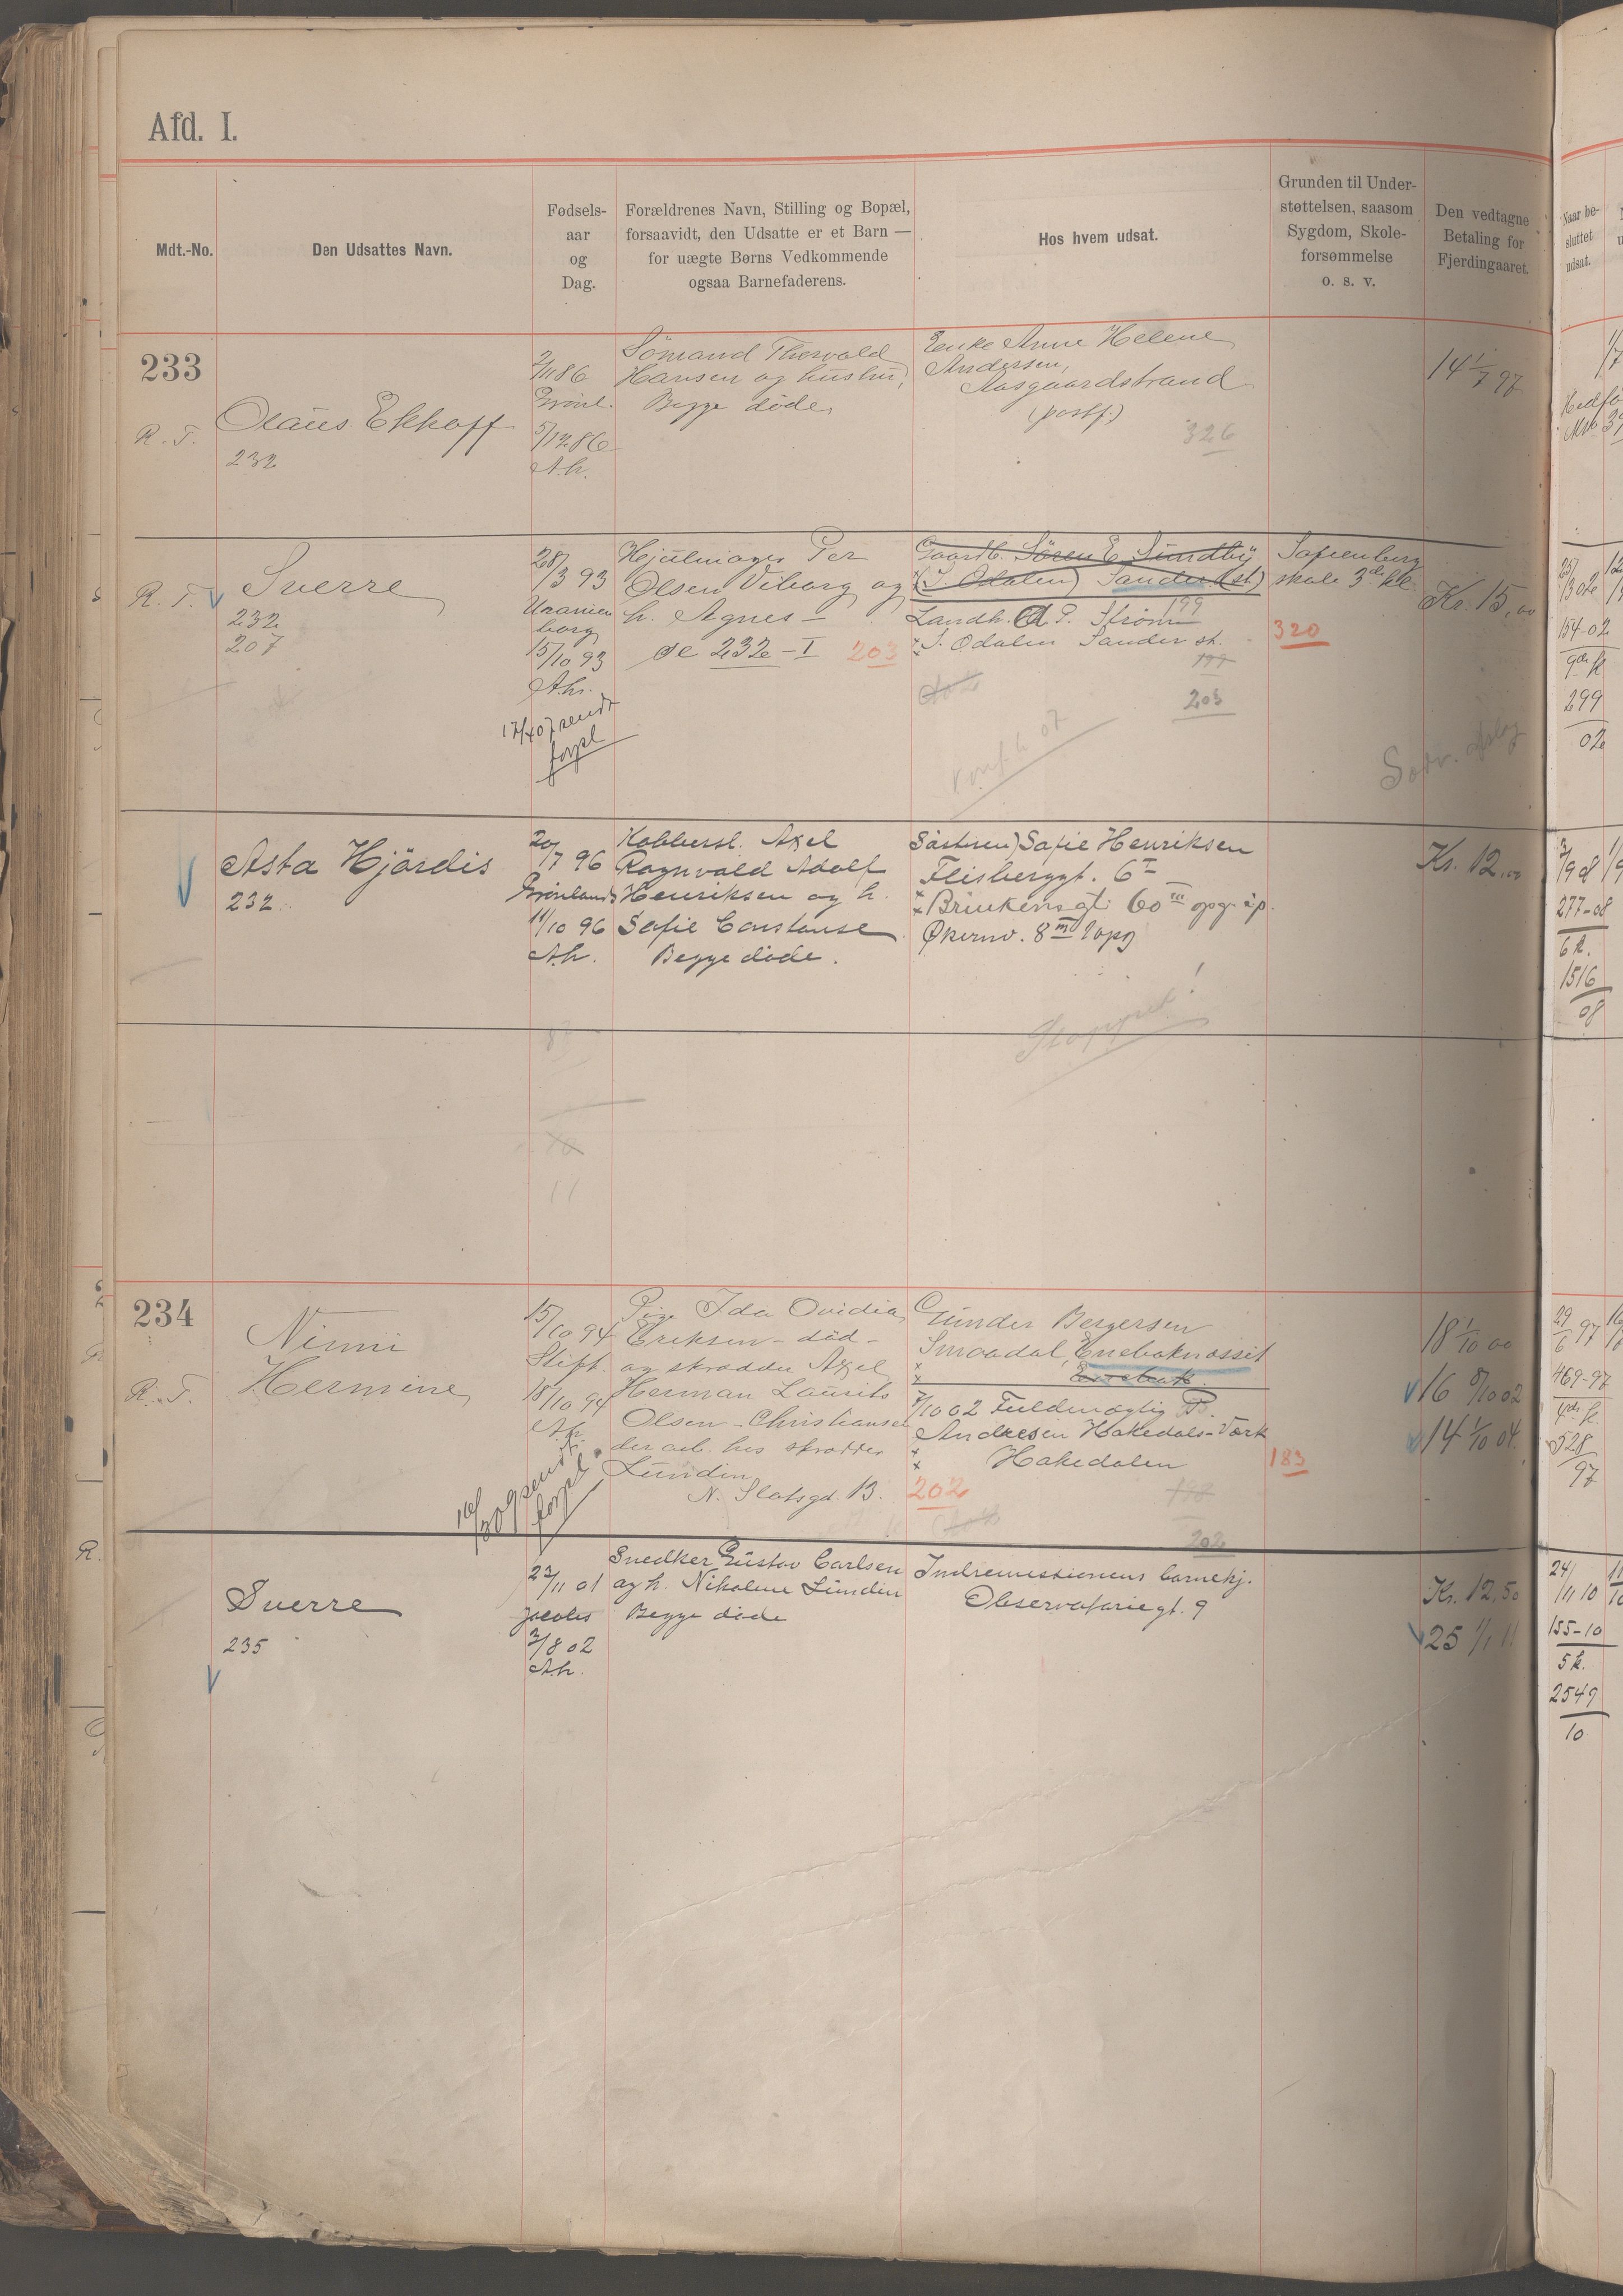 Afd. I.
Mdt.-No.
Den Udsattes Navn.
Fødsels-
aar
og
Dag.
Forældrenes Navn, Stilling og Bopæl,
forsaavidt, den Udsatte er et Barn —
for uægte Børns Vedkommende
ogsaa Barnefaderens.
Hos hvem udsat.
Grunden til Under-
støttelsen, saasom
Sygdom, Skole-
forsømmelse
o. s. v.
Den vedtagne
Betaling for
Fjerdingaaret.
Naar be-
sluttet
udsat.
233
R. T.
Olaus Ekhoff
232
2/11 86
Grönl.
5/12 86
A.k.
Sömand Thorvald
Hansen og hustru,
Begge döde,
Enke Anne Helene
Andersen,
Aasgaardstrand
(postf.)
326
14 1/7 97
R. T.
Sverre
232
207
28/3 93
Uranien
borg
15/10 93
A.k.
17/4 07 sendt
forpl
Hjulmager Per
Olsen Viborg og
h. Agnes –
se 232 – I 203
Gaardb. Sören E. Sundby
(S. Odalen) Sander (st)
Landh. A. P. Ström 199
S. Odalen Sander st.
199
203
Konf. h 07
Sofienberg
skole 3die kl.
320
Kr. 15,00
25/1302
154-02
9de k
299
02
Asta Hjördis
232
20/7 96
Grönland
11/10 96
A.k.
Kobbersl. Axel
Ragnvald Adolf
Henriksen og h.
Sofie Constanse
Begge döde.
Söstren) Sofie Henriksen
Fleisberggt. 6 I
Brinkens gt. 60 III opg. ip.
Økernv. 8 III 2 opg
Stoppet!
Kr. 12.00
277-08
6 k.
1516
08
11
234
R. T.
Nimi
Hermine
15/10 94
Stift.
18/10 94
A.k.
sendt
forpl.
Pige Ida Ovidia
Eriksen – död –
og skrædder Axel
Herman Laurits
Olsen – Christiansen
der arb. hos skrædder
Lundin
N. Slotsgd. 13.
Gunder Bergersen
Smaadal, Enebaknæsset
Enebak.
7/10 02 Fuldmægtig P.
Andresen Hakedals-Værk
Hakedalen
202
183
202
18 1/10 00
16 8/10 02
14 1/10 04
29/6 97
469-97
4de k.
528
97
Sverre
235
22/11 01
Jacobs
3/8 02
A.k.
Snedker Gustav Carlsen
og h. Nikoline Lundin
Begge döde
Indremissionens barnehj.
Observatoriegt. 9
Kr. 12,50
25 1/1 11
24/11 10
155-10
5 k.
2549
10